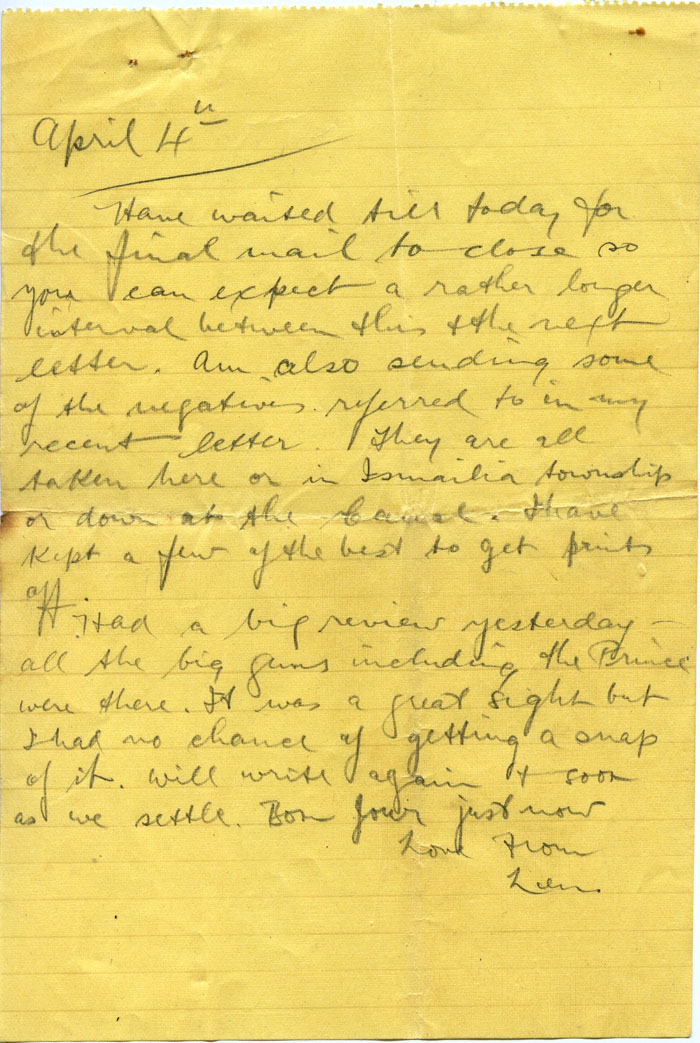 April 4th
Have waited till today for
the final mail to close so
you can expect a rather longer
interval between this & the next
letter. Am also sending some
of the negatives referred to in my
recent letter. They are all
taken here or in Ismailia township
or down at the Canal. I have
kept a few of the best to get prints
off.
Had a big review yesterday –
all the big guns including the Prince
were there. It was a great sight but
I had no chance of getting a snap
of it. Will write again & soon
as we settle. Bon Jour just now
Love From
Len.